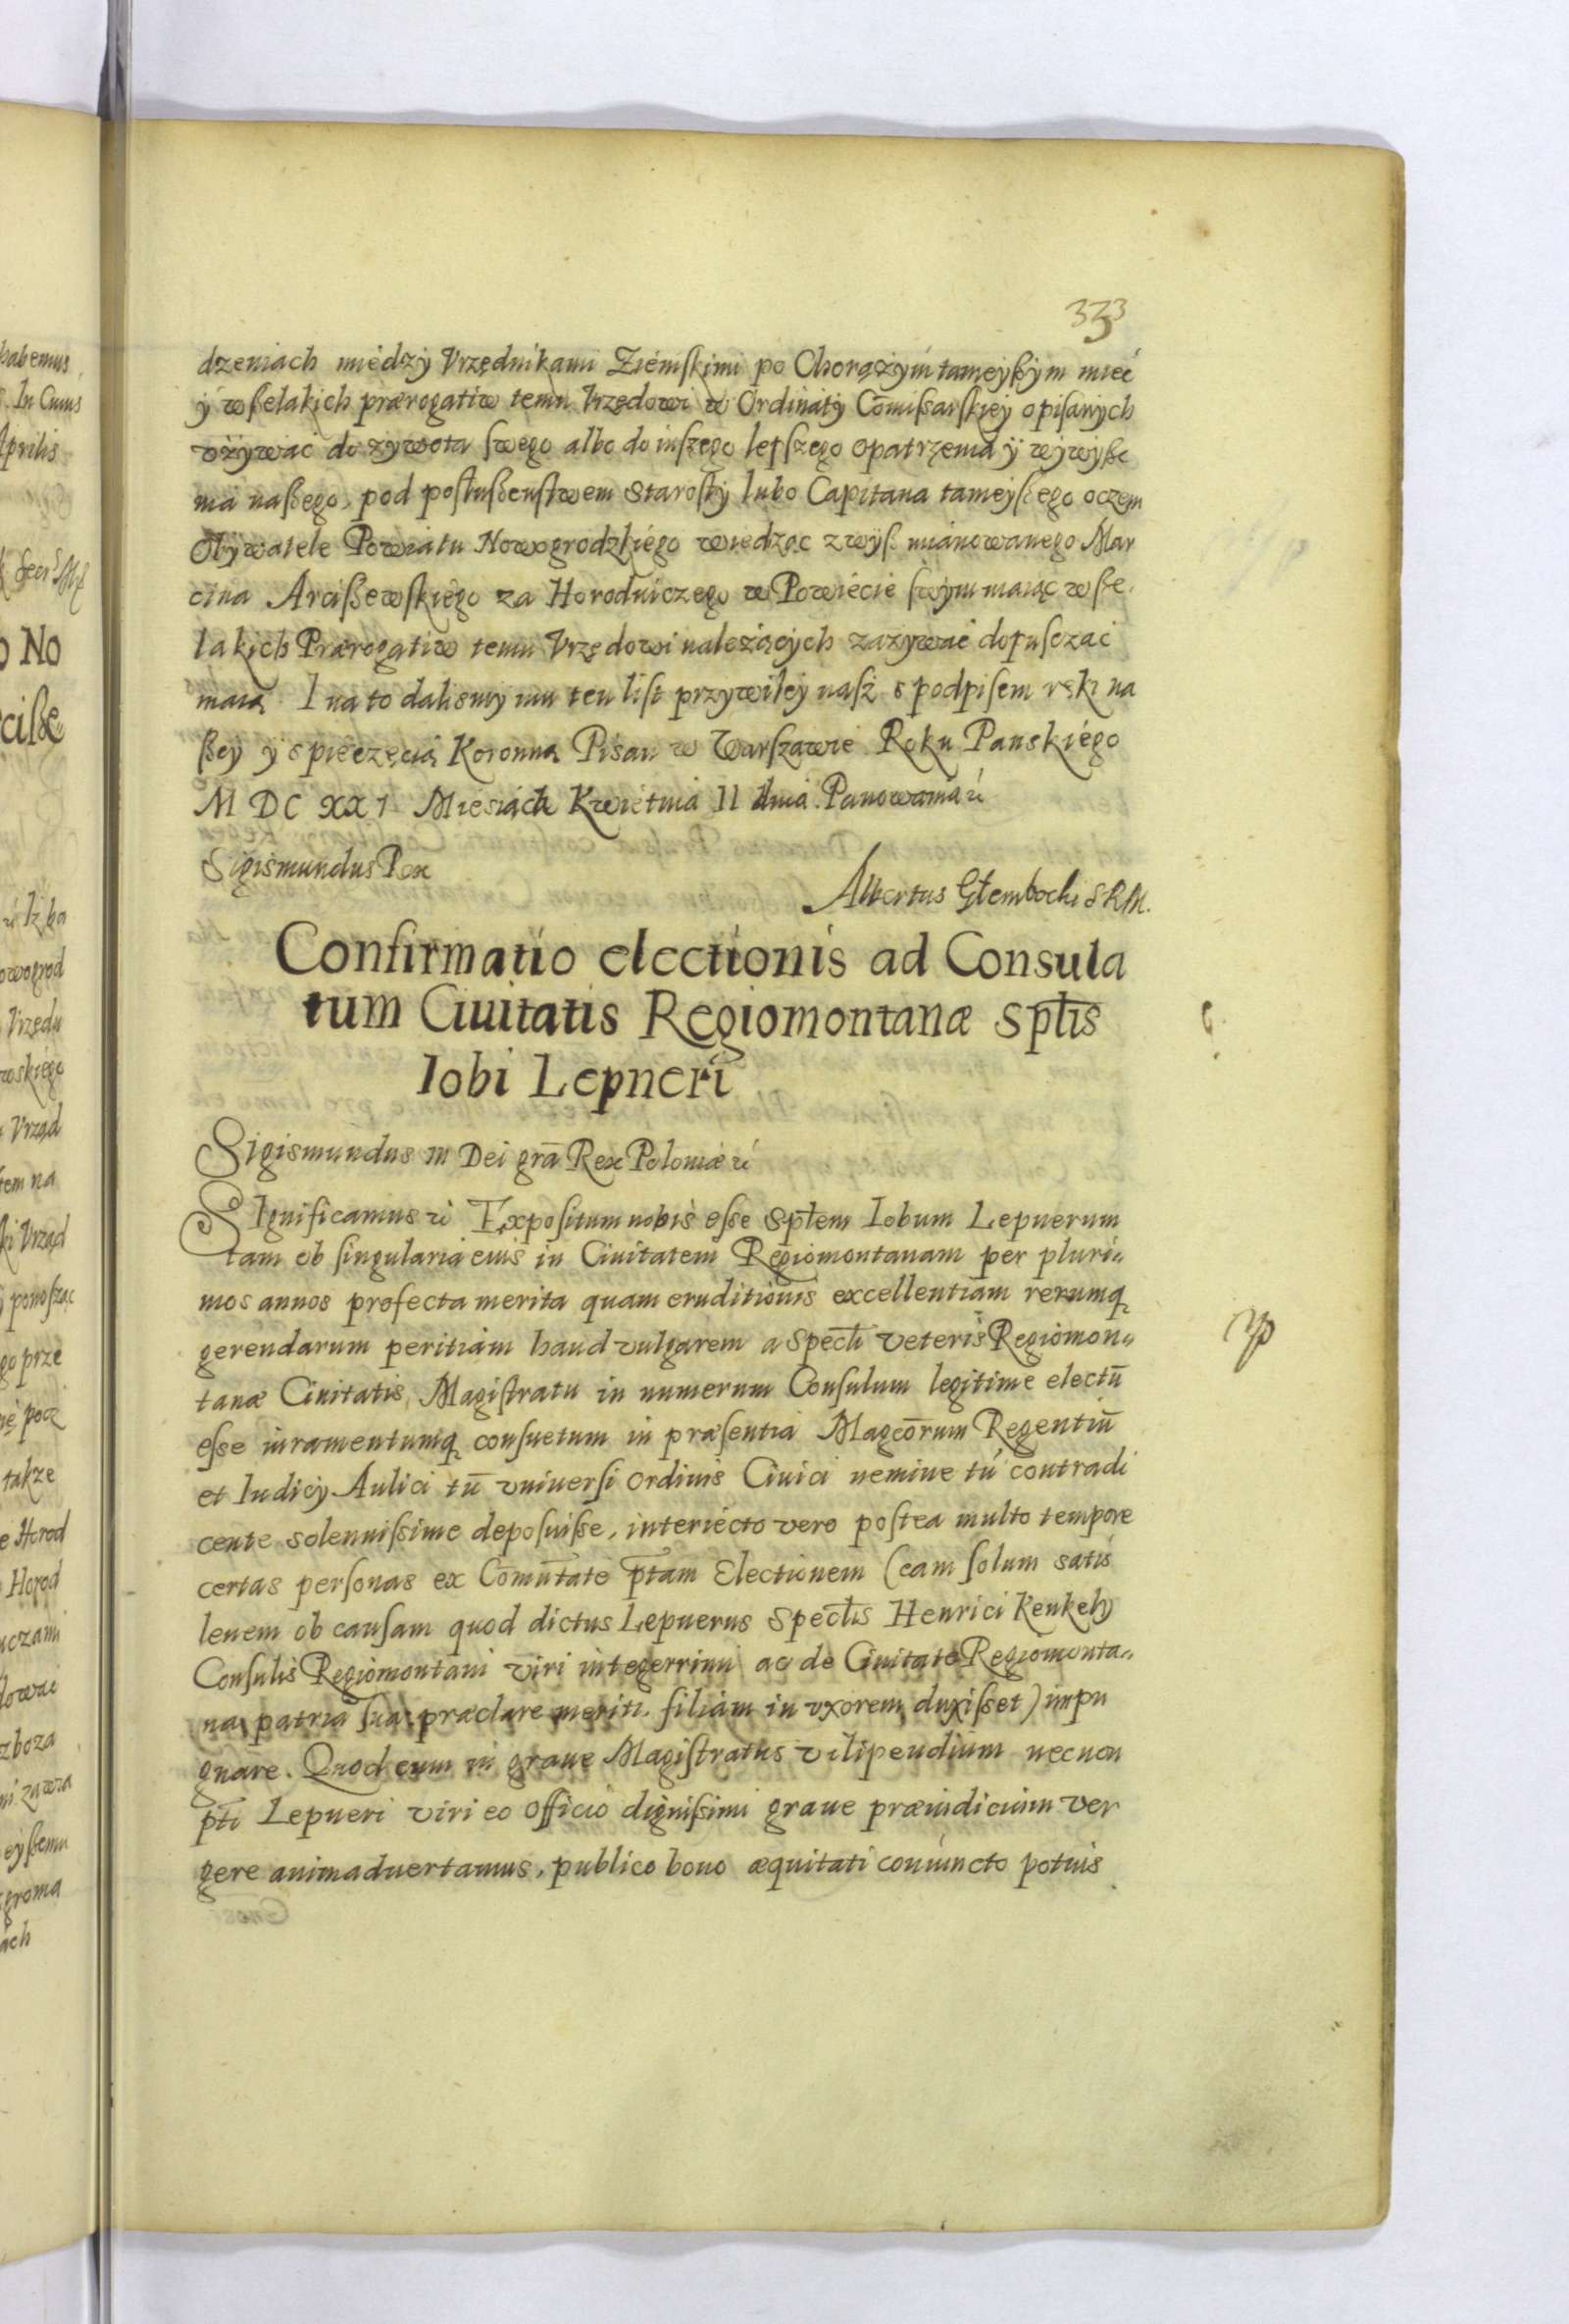 333
dzeniach międzÿ Vrzędnikami Ziemskimi po Chorążÿm tameÿßÿm mieć
ÿ wßelakich prærogatiw temu Vrzędowi w Ordinatÿ Comißarskieÿ opisanÿch
vżÿwać do zÿwota swego albo do inszego lepszego opatrzenia ÿ wÿwÿße
nia naßego, pod posłußenstwem Starostÿ lubo Capitana tameÿßego oczem
Obÿwatele Powiatu Nowogrodzkiego wiedząc zwÿß mianowanego Mar
cina Arcißewskiego za Horodniczego w Powiecie swÿm maiąc wße
lakich Prærogatiw temu Vrzędowi należącÿch zazÿwać dopusczać
maią. I na to dalismÿ mu ten list przÿwileÿ nasz s podpisem ręki na
ßeÿ ÿ s pieczęcią Koronną Pisan w Warszawie Roku Panskiego
M DC XXI Miesiąca Kwietnia 11 dnia. Panowania &
Sigismundus Rex
Albertus Głembocki S R M.
Confirmatio electionis ad Consula
tum Ciuitatis Regiomontanæ Sptis
Iobi Lepneri
Sigismundus III Dei gra Rex Poloniæ &
Significamus & Expositum nobis esse Sptem Iobum Lepnerum
tam ob singularia eius in Ciuitatem Regiomontanam per pluri„
mos annos profecta merita quam eruditionis excellentiam rerumq
gerendarum peritiam haud vulgarem a Specti Veteris Regiomon„
tanæ Ciuitatis Magistratu in numerum Consulum legitime electū
esse iuramentumq consuetum in præsentia Magcorum Regentiū
et Iudicÿ Aulici tū vniuersi ordinis Ciuici nemine tū contradi
cente solennissime deposuisse, interiecto vero postea multo tempore
certas personas ex Comūtate ptam Electionem (eam solum satis
leuem ob causam quod dictus Lepnerus Spectis Henrici Kenkelÿ
Consulis Regiomontani viri integerrimi ac de Ciuitate Regiomonta„
na, patria sua præclare meriti. filiam in vxorem duxisset) impu
gnare. Quod cum in graue Magistratus vilipendium necnon
pti Lepneri viri eo Officio dignissimi graue præiudicium ver
gere animaduertamus, publico bono æquitati coniuncto potius